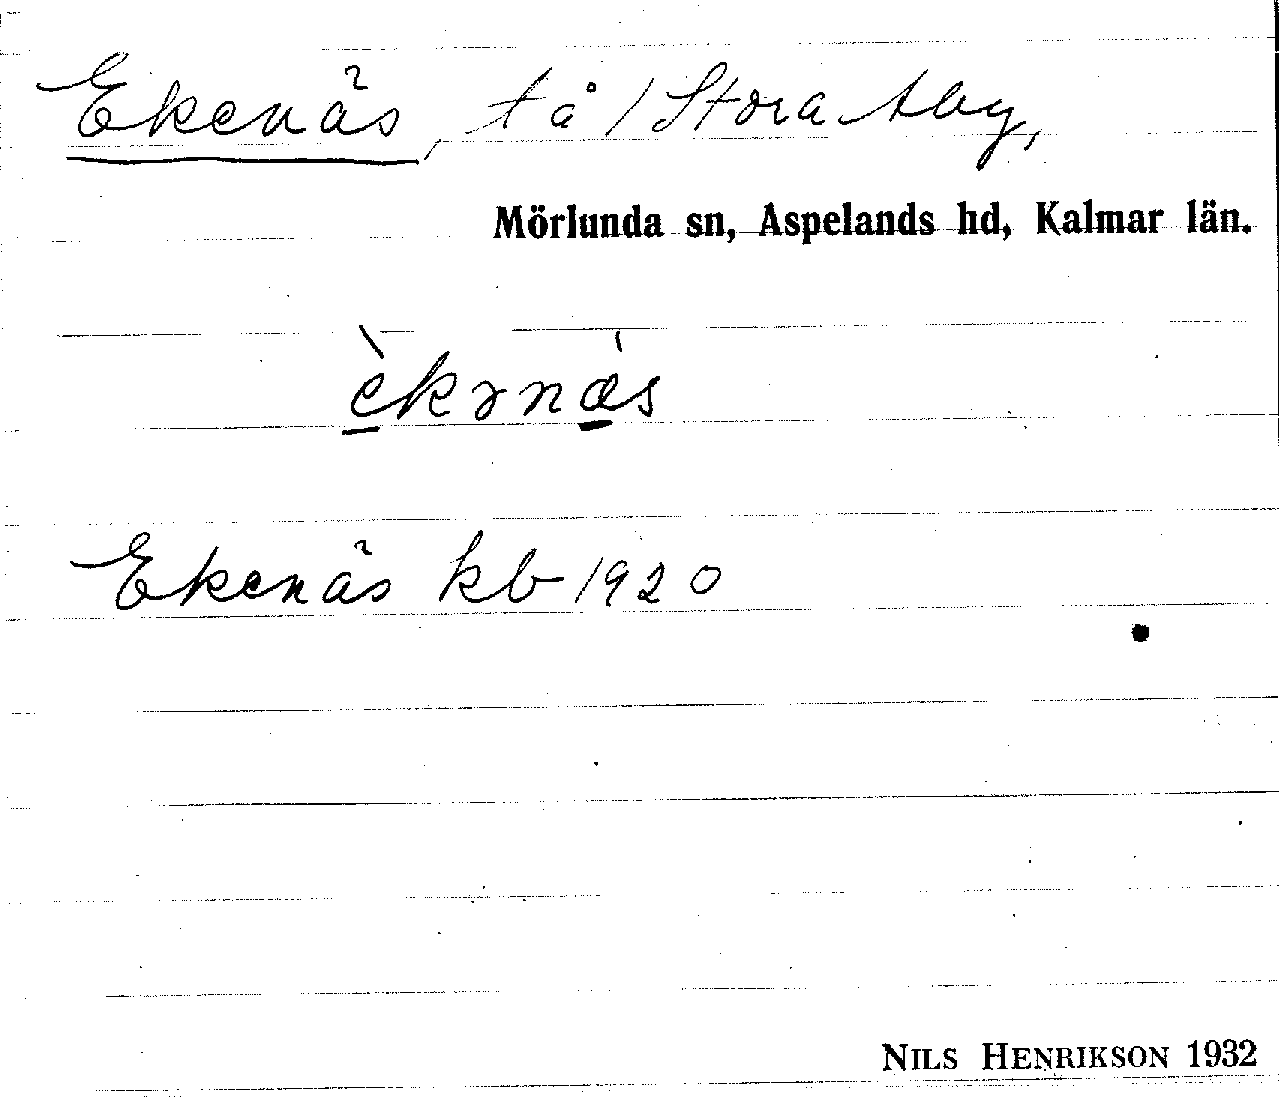 Ekenäs, tå / Stora Aby,
Mörlunda sn, Aspelands hd, Kalmar län.
èkɤnǽs
Ekenäs kb 1920
NILS HENRIKSON 1932